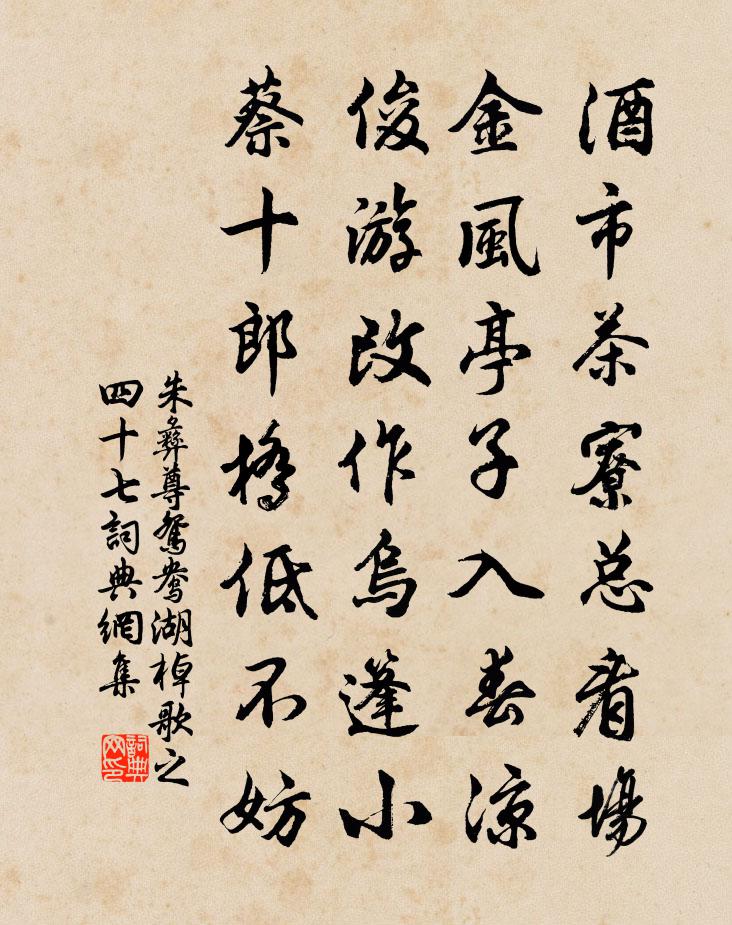 酒市茶寮总看場
金風亭子入春涼
俊游改作烏篷小
蔡十郎橋低不妨
朱彝尊鴛鴦湖棹歌之
四十七詞典網集
詞典网印